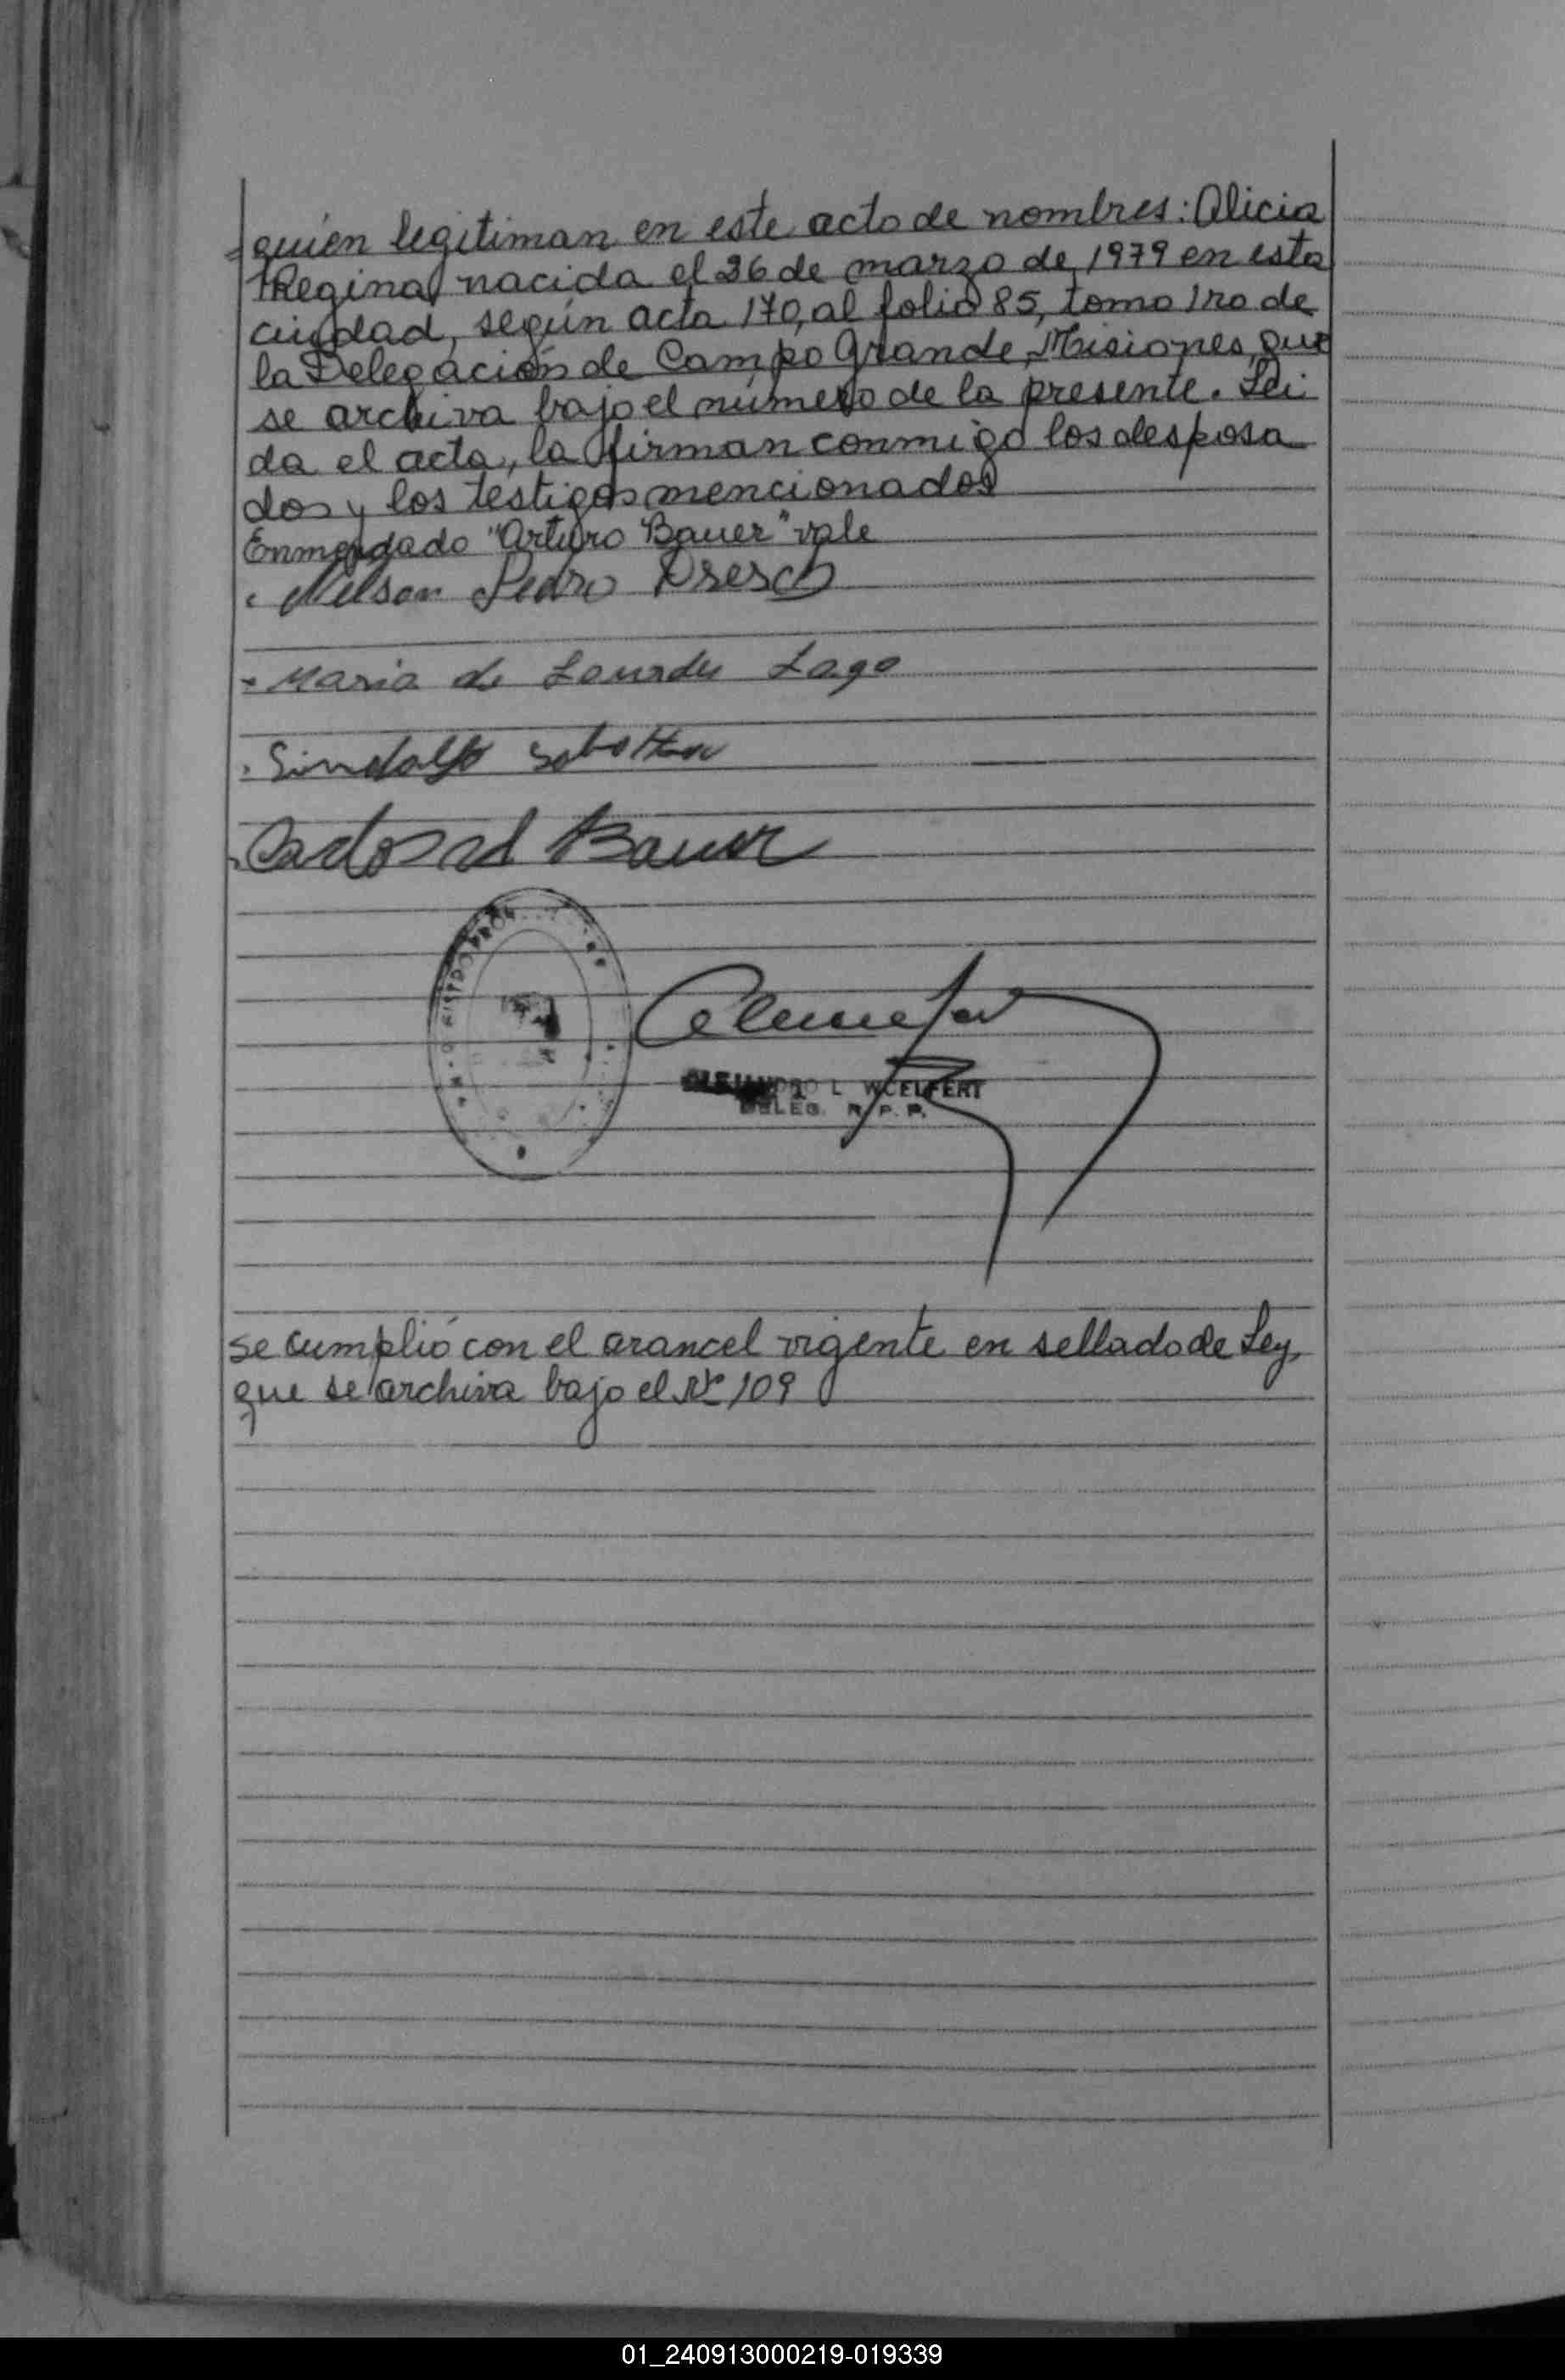 quien legitiman en este acto de nombres: Alicia
Regina, nacida el 26 de marzo de 1979 en esta
ciudad, según acta 170, al folio 85, tomo 1ro de
la Delegación de Campo Grande, Misiones, que
se archiva bajo el número de la presente. Lei
da el acta, la firman conmigo los desposa
dos y los testigos mencionados
Enmendado "Arturo Bauer" vale
Nelson Pedro Dresch
Maria de Lourdes Lago
Sindolfo
Bauer
WOELFERT
DELEG. R. P. P.
se cumplió con el arancel vigente en sellado de Ley,
que se archiva bajo el Nº 109
01_240913000219-019339